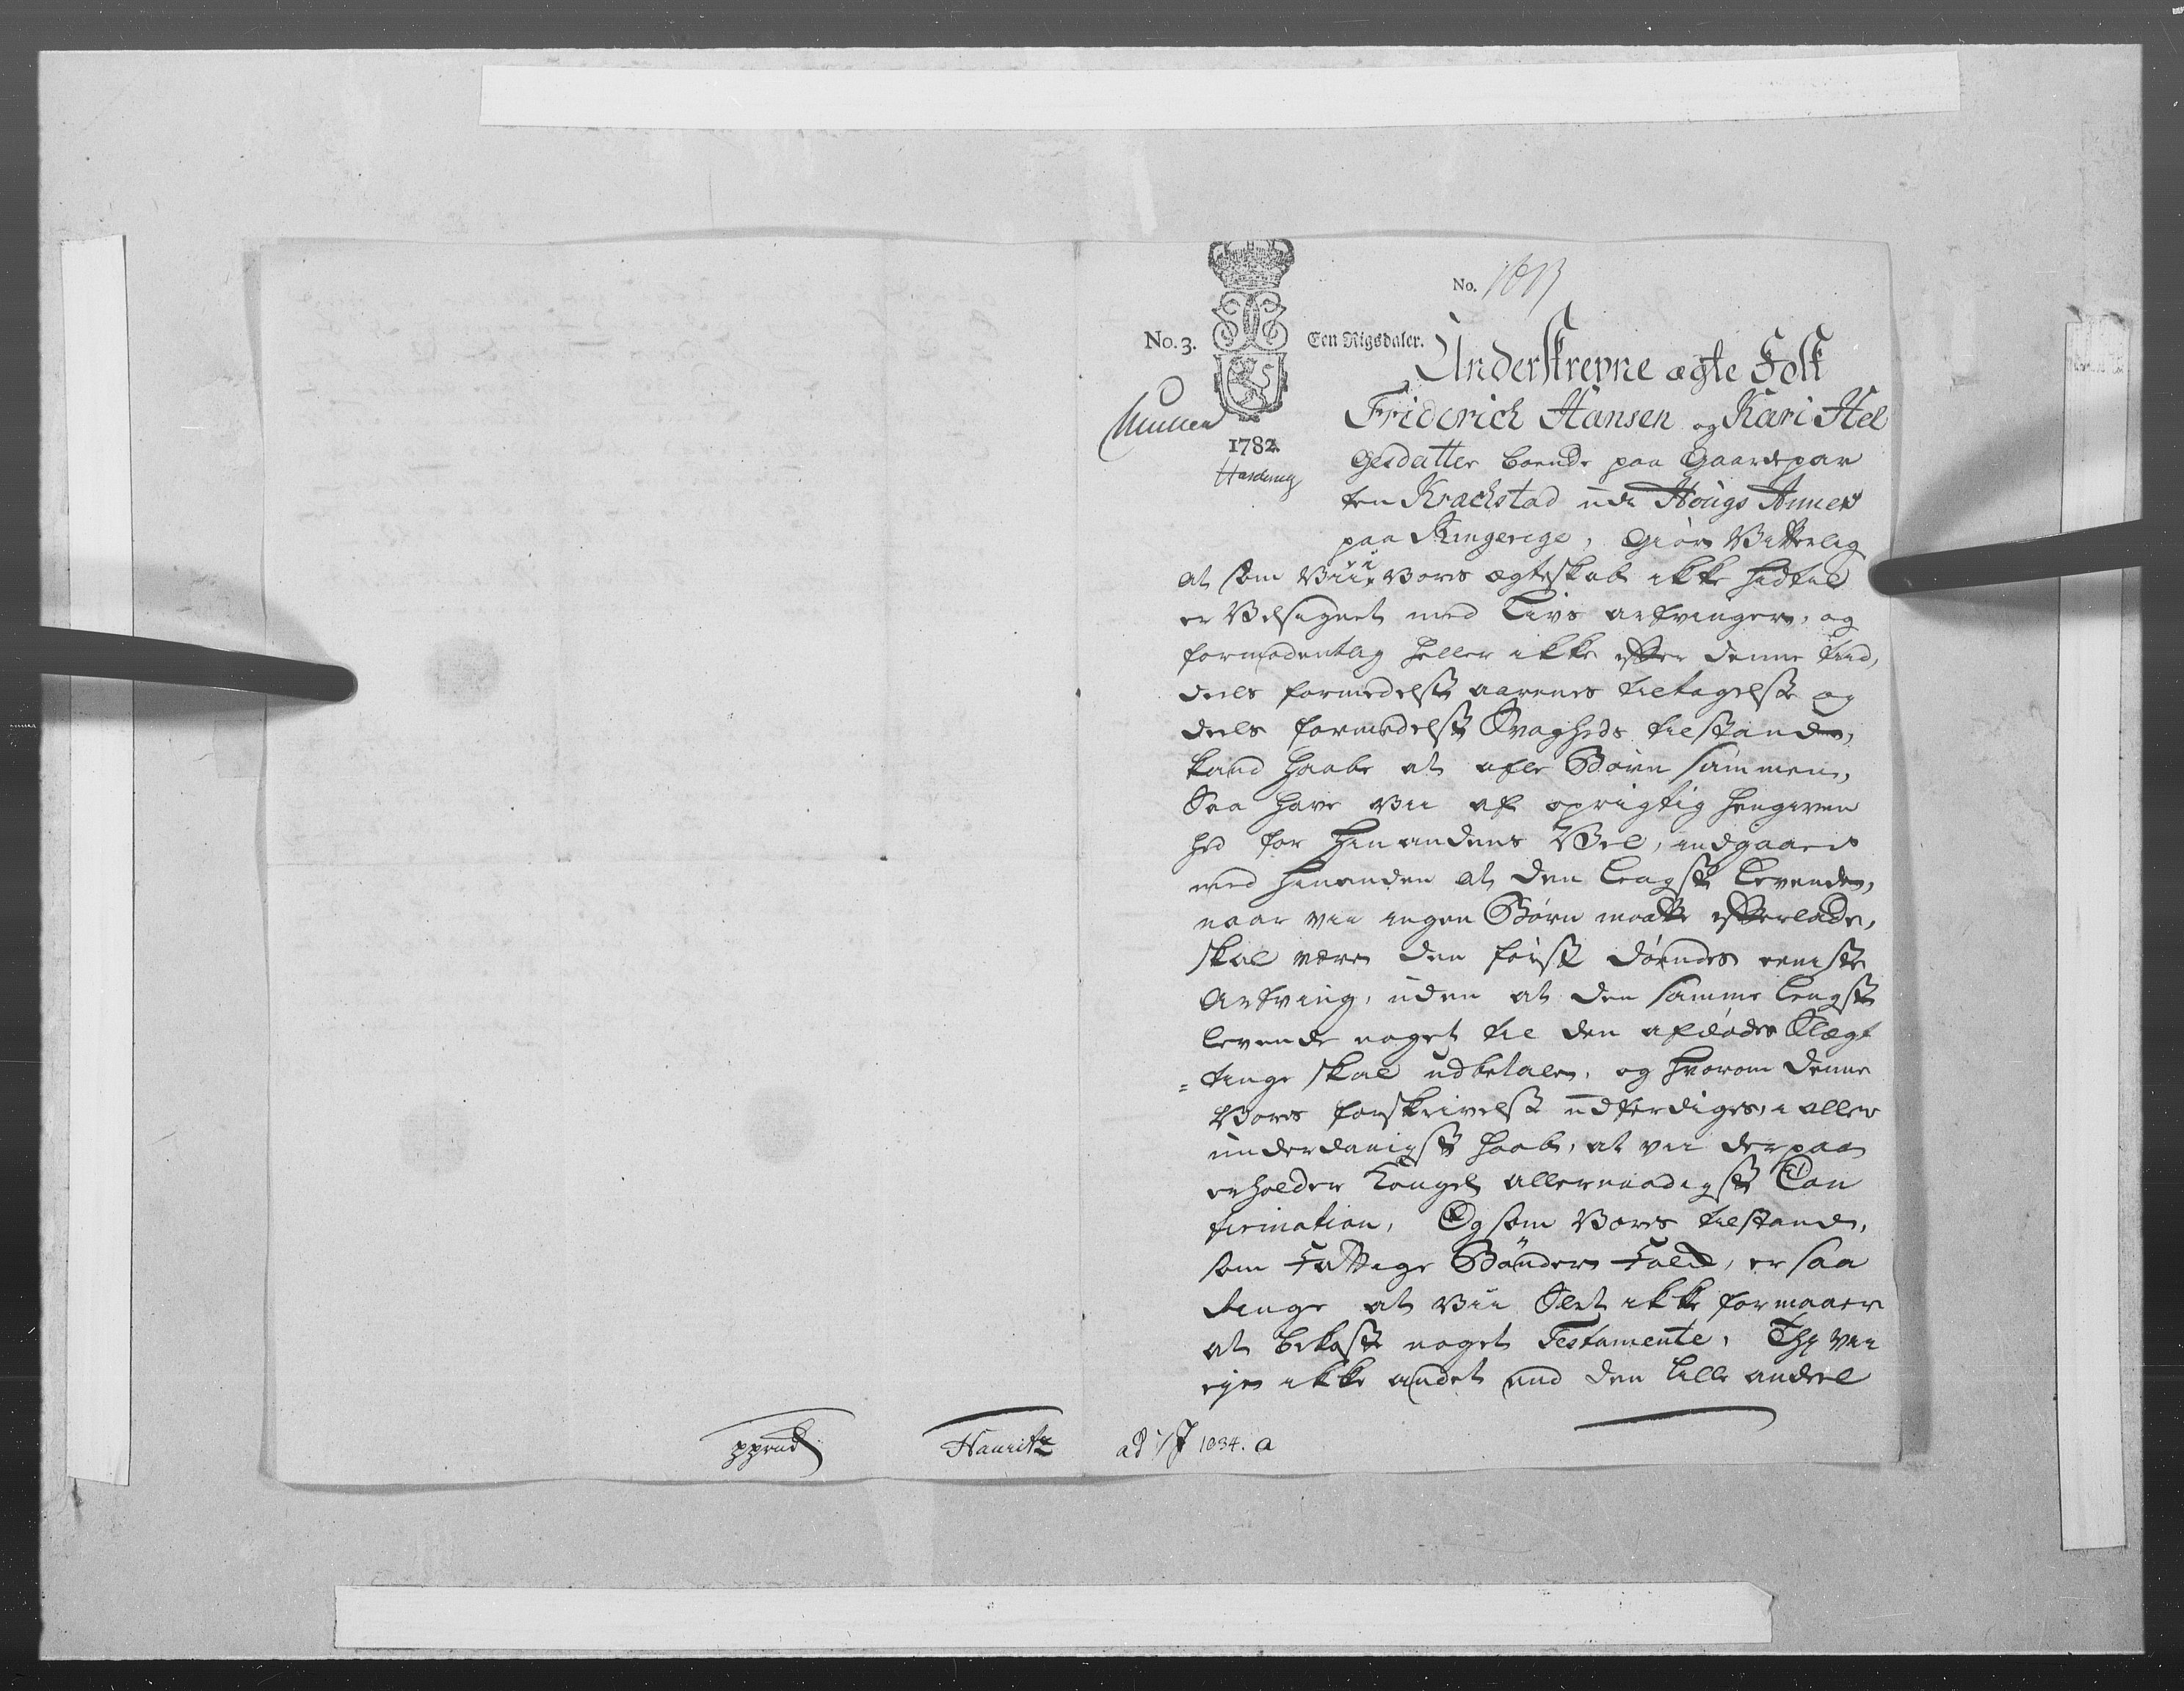 No. 1013
No. 3. Een Rigsdaler.
1782
Underskrevne ægte Folk
Friderich Hansen og Kari Hel
gesdatter boende paa Gaardepar
ten Krachstad udi Hougs Annex
paa Ringerige, Giør Vitterlig
at som Vii i Vores ægteskab ikke hidtil
er Velsignet med Livs arfvinger, og
formodentlig heller ikke efter denne tiid,
deels formedelst aarenes tiltagelse og
deels formedelst Svagheds tilstande,
kand haabe at afle Børn sammen,
Saa have vii af oprigtig hengiven
hed for hinandens Vel, indgaaed
med hinanden at den lengst levende,
naar vii ingen Børn maatte efterlade,
skal være den først døendes eeniste
Arfving, uden at den samme lengst
levende noget til den afdødes Slægt
= tinge skal udbetale, og hvorom denne
Vores forskrivelse udferdiges, i aller
underdanigst haab, at vii derpaa
erholder Kongel allernaadigst Con
firmation, Og som Vores tilstand,
som fattige Bønder folk, er saa
ringe at Vii Slet ikke formaaer
at bekoste noget Testamente, Thi vii
eje ikke andet end den lille andeel
pprud Hauritz ad 1034. a